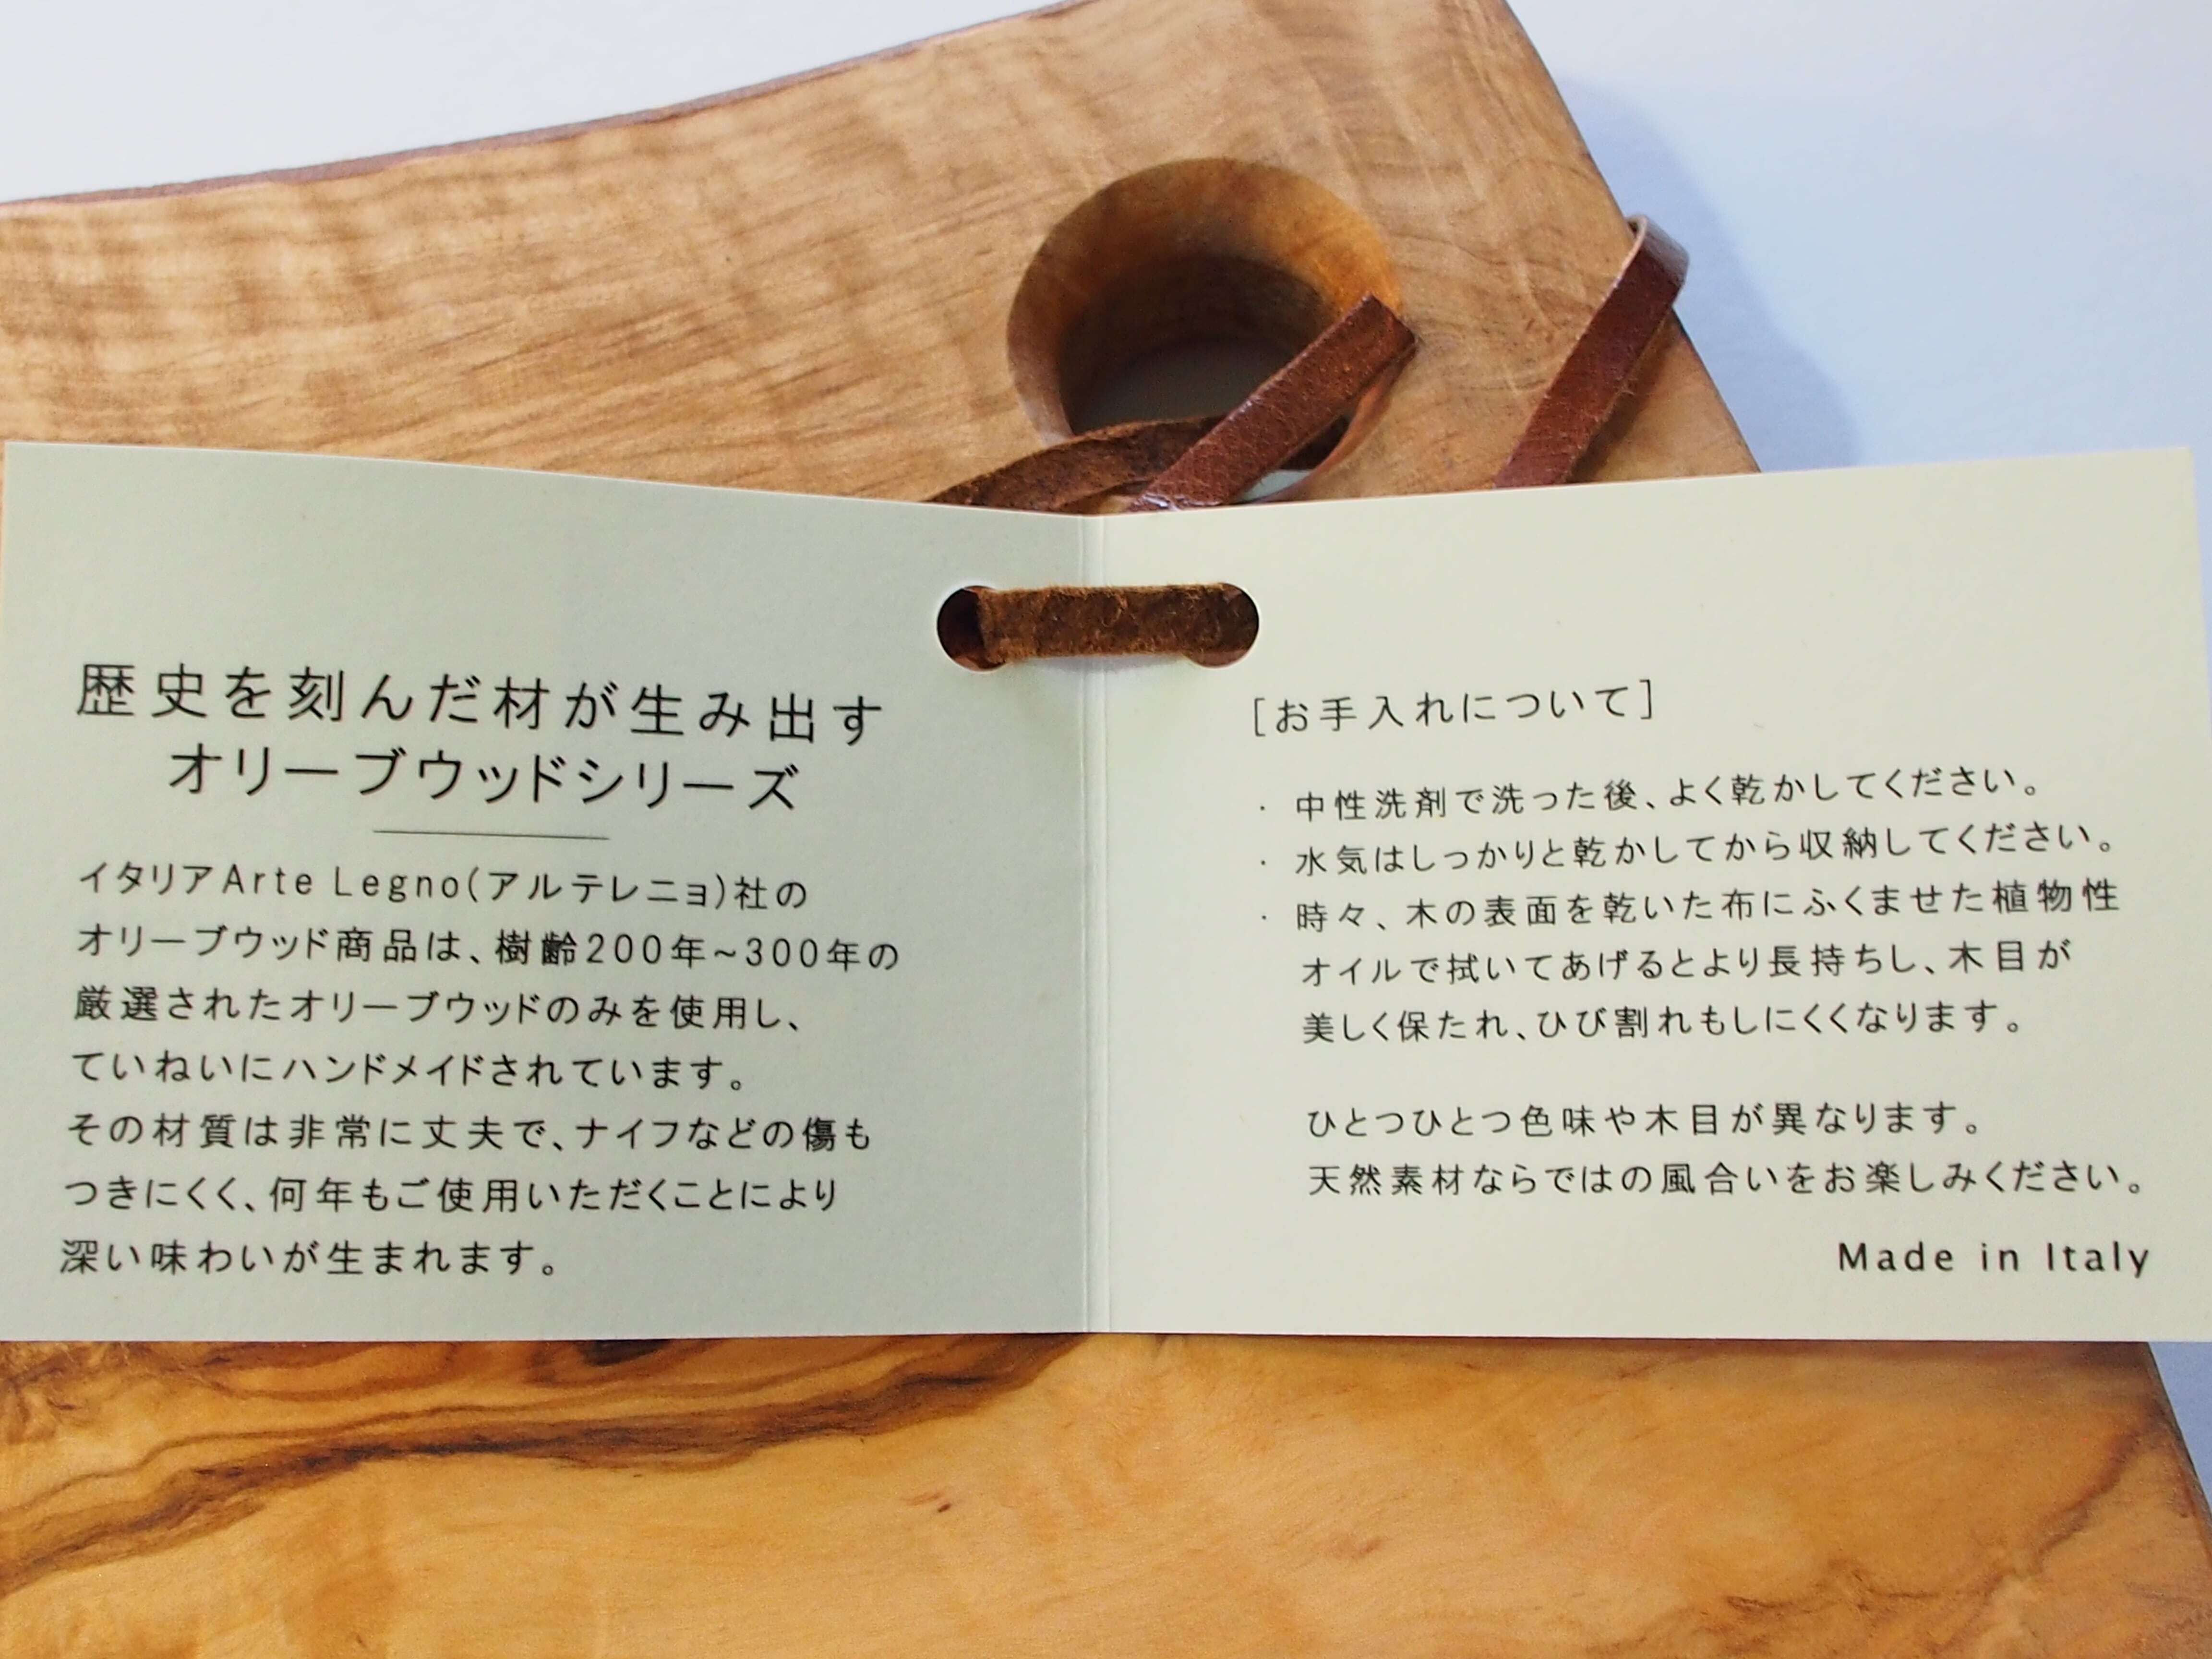 歴史を刻んだ材が生み出す
オリーブウッドシリーズ
イタリアArte Legno(アルテレニョ)社の
オリーブウッド商品は、樹齢200年~300年の
厳選されたオリーブウッドのみを使用し、
ていねいにハンドメイドされています。
その材質は非常に丈夫で、ナイフなどの傷も
つきにくく、何年もご使用いただくことにより
深い味わいが生まれます。
[お手入れについて]
・ 中性洗剤で洗った後、よく乾かしてください。
・ 水気はしっかりと乾かしてから収納してください。
・ 時々、木の表面を乾いた布にふくませた植物性
オイルで拭いてあげるとより長持ちし、木目が
美しく保たれ、ひび割れもしにくくなります。
ひとつひとつ色味や木目が異なります。
天然素材ならではの風合いをお楽しみください。
Made in Italy